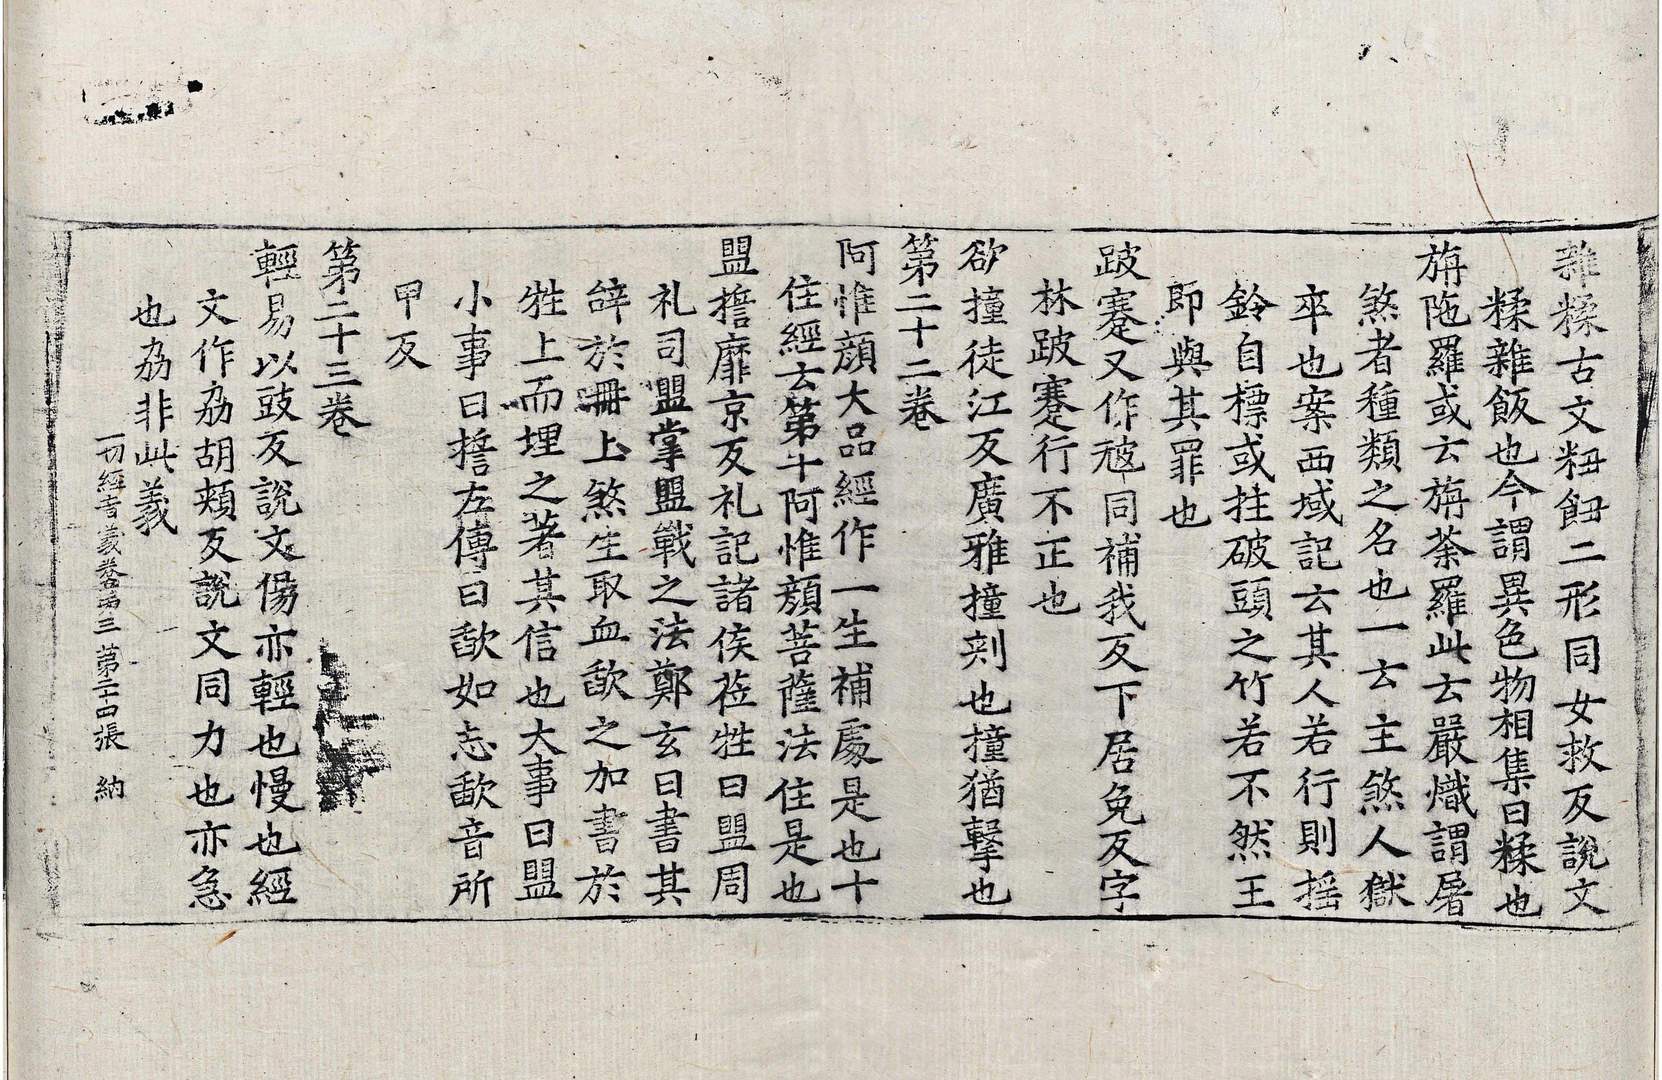 雜糅古文粈䬦二形同女救反說文
糅雜飯也今謂異色物相集曰糅也
旃陁羅或云旃荼羅此云嚴熾謂屠
煞者種類之名也一云主煞人獄
卒也案西域記云其人若行則揺
鈴自標或拄破頭之竹若不然王
即與其罪也
跛蹇又作㝿同補我反下居免反字
林跛蹇行不正也
欲撞徒江反廣雅撞刾也撞猶擊也
第二十二卷
阿惟顔大品經作一生補處是也十
住經云第十阿惟顔菩薩法住是也
盟誓靡京反礼記諸侯莅牲曰盟周
礼司盟掌盟載之法鄭玄曰書其
辝於冊上煞牲取血歃之加書於
牲上而埋之著其信也大事曰盟
小事曰誓左傳曰歃如忘歃音所
甲反
第二十三卷
輕易以豉反說文傷亦輕也慢也經
文作劦胡頰反說文同力也亦急
也劦非此義
一切經音義卷第三 第二十四張 納